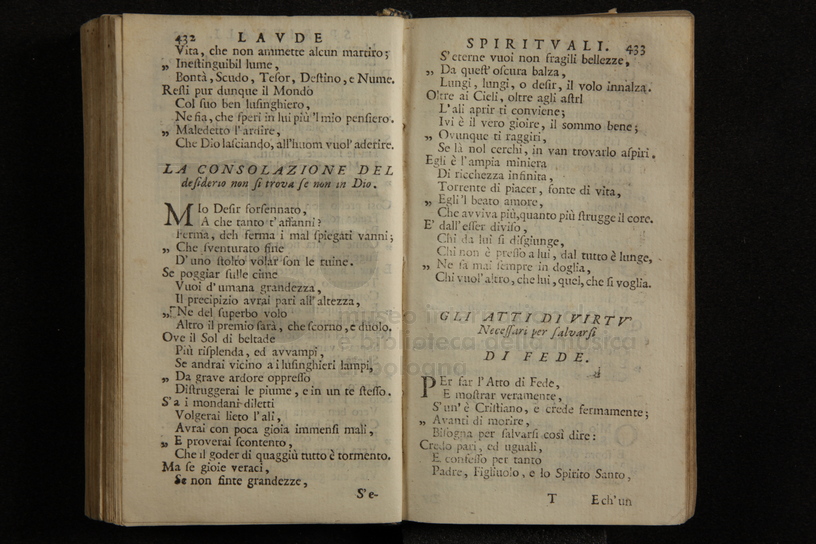 432 LAVDE
Vita, che non ammette alcun martiro;
„ Inestinguibil lume,
Bontà, Scudo, Tesor, Destino, e Nume.
Resti pur dunque il Mondo
Col suo ben lusinghiero,
Ne sia, che speri in lui più 'l mio pensiero.
„ Maledetto l'ardire,
Che Dio lasciando, all'huom vuol' aderire.
LA CONSOLAZIONE DEL
desiderio non si trova se non in Dio.
MIo Desir forsennato,
A che tanto t'affanni?
Ferma, deh ferma i mal spiegati vanni;
„ Che sventurato fine
D'uno stolto volar son le ruine.
Se poggiar sulle cime
Vuoi d'umana grandezza,
Il precipizio avrai pari all'altezza,
„ Ne del superbo volo
Altro il premio sarà, che scorno, e duolo.
Ove il Sol di beltade
Più risplenda, ed avvampi,
Se andrai vicino a i lusinghieri lampi,
„ Da grave ardore oppresso
Distruggerai le piume, e in un te stesso.
S'a i mondani diletti
Volgerai lieto l'ali,
Avrai con poca gioia immensi mali,
„ E proverai scontento,
Che il goder di quaggiù tutto è tormento.
Ma se gioie veraci,
Se non finte grandezze,
S'e-
SPIRITVALI. 433
S'eterne vuoi non fragili bellezze,
„ Da quest'oscura balza,
Lungi, lungi, o desir, il volo innalza.
Oltre ai Cieli, oltre agli astri
L'ali aprir ti conviene;
Ivi è il vero gioire, il sommo bene;
„ Ovunque ti raggiri,
Se là nol cerchi, in van trovarlo aspiri.
Egli è l'ampia miniera
Di ricchezza infinita,
Torrente di piacer, fonte di vita,
„ Egli 'l beato amore,
Che avviva più, quanto più strugge il core.
E' dall'esser diviso,
Chi da lui si disgiunge,
Chi non è presso a lui, dal tutto è lunge,
„ Ne sa mai sempre in doglia,
Chi vuol'altro, che lui, quel, che si voglia.
GLI ATTI DI VIRTV'
Necessari per salvarsi
DI FEDE.
PEr far l'Atto di Fede,
E mostrar veramente,
S'un'è Cristiano, e crede fermamente;
„ Avanti di morire,
Bisogna per salvarsi così dire:
Credo pari, ed uguali,
E confesso per tanto
Padre, Figliuolo, e lo Spirito Santo,
T E ch'un
museo internazionale
e biblioteca della musica
di bologna